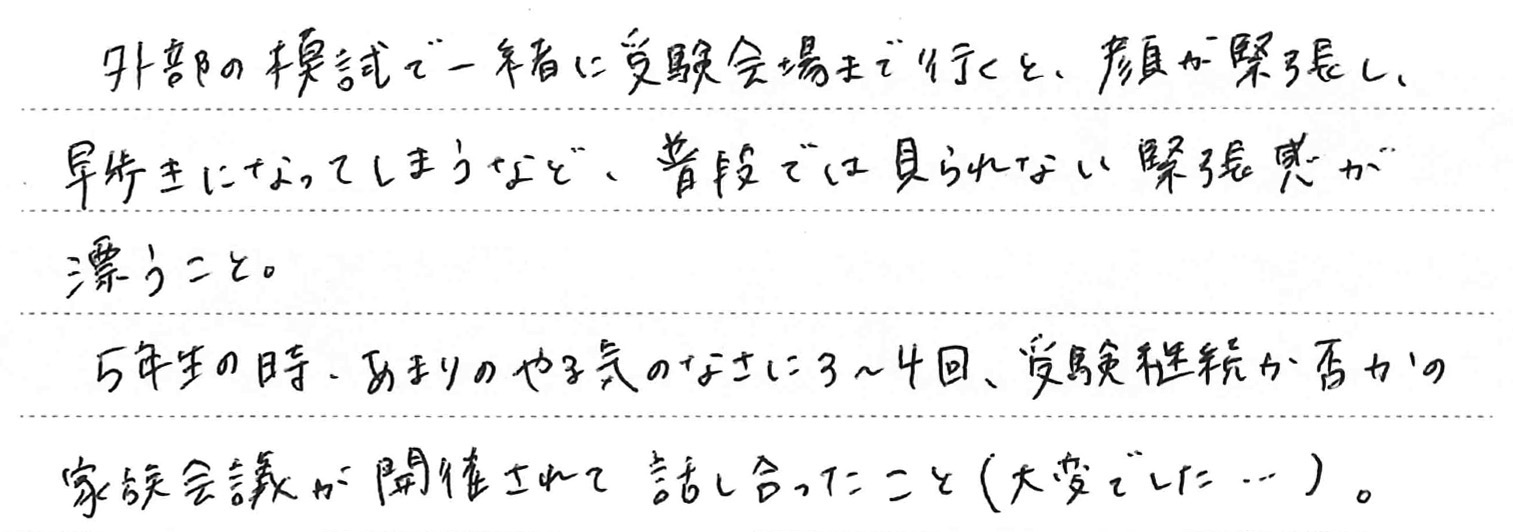 外部の模試で一緒に受験会場まで行くと、顔が緊張し、
早歩きになってしまうなど、普段では見られない緊張感が
漂うこと。
5年生の時、あまりのやる気のなさに3～4回、受験継続か否かの
家族会議が開催されて話し合ったこと(大変でした…)。